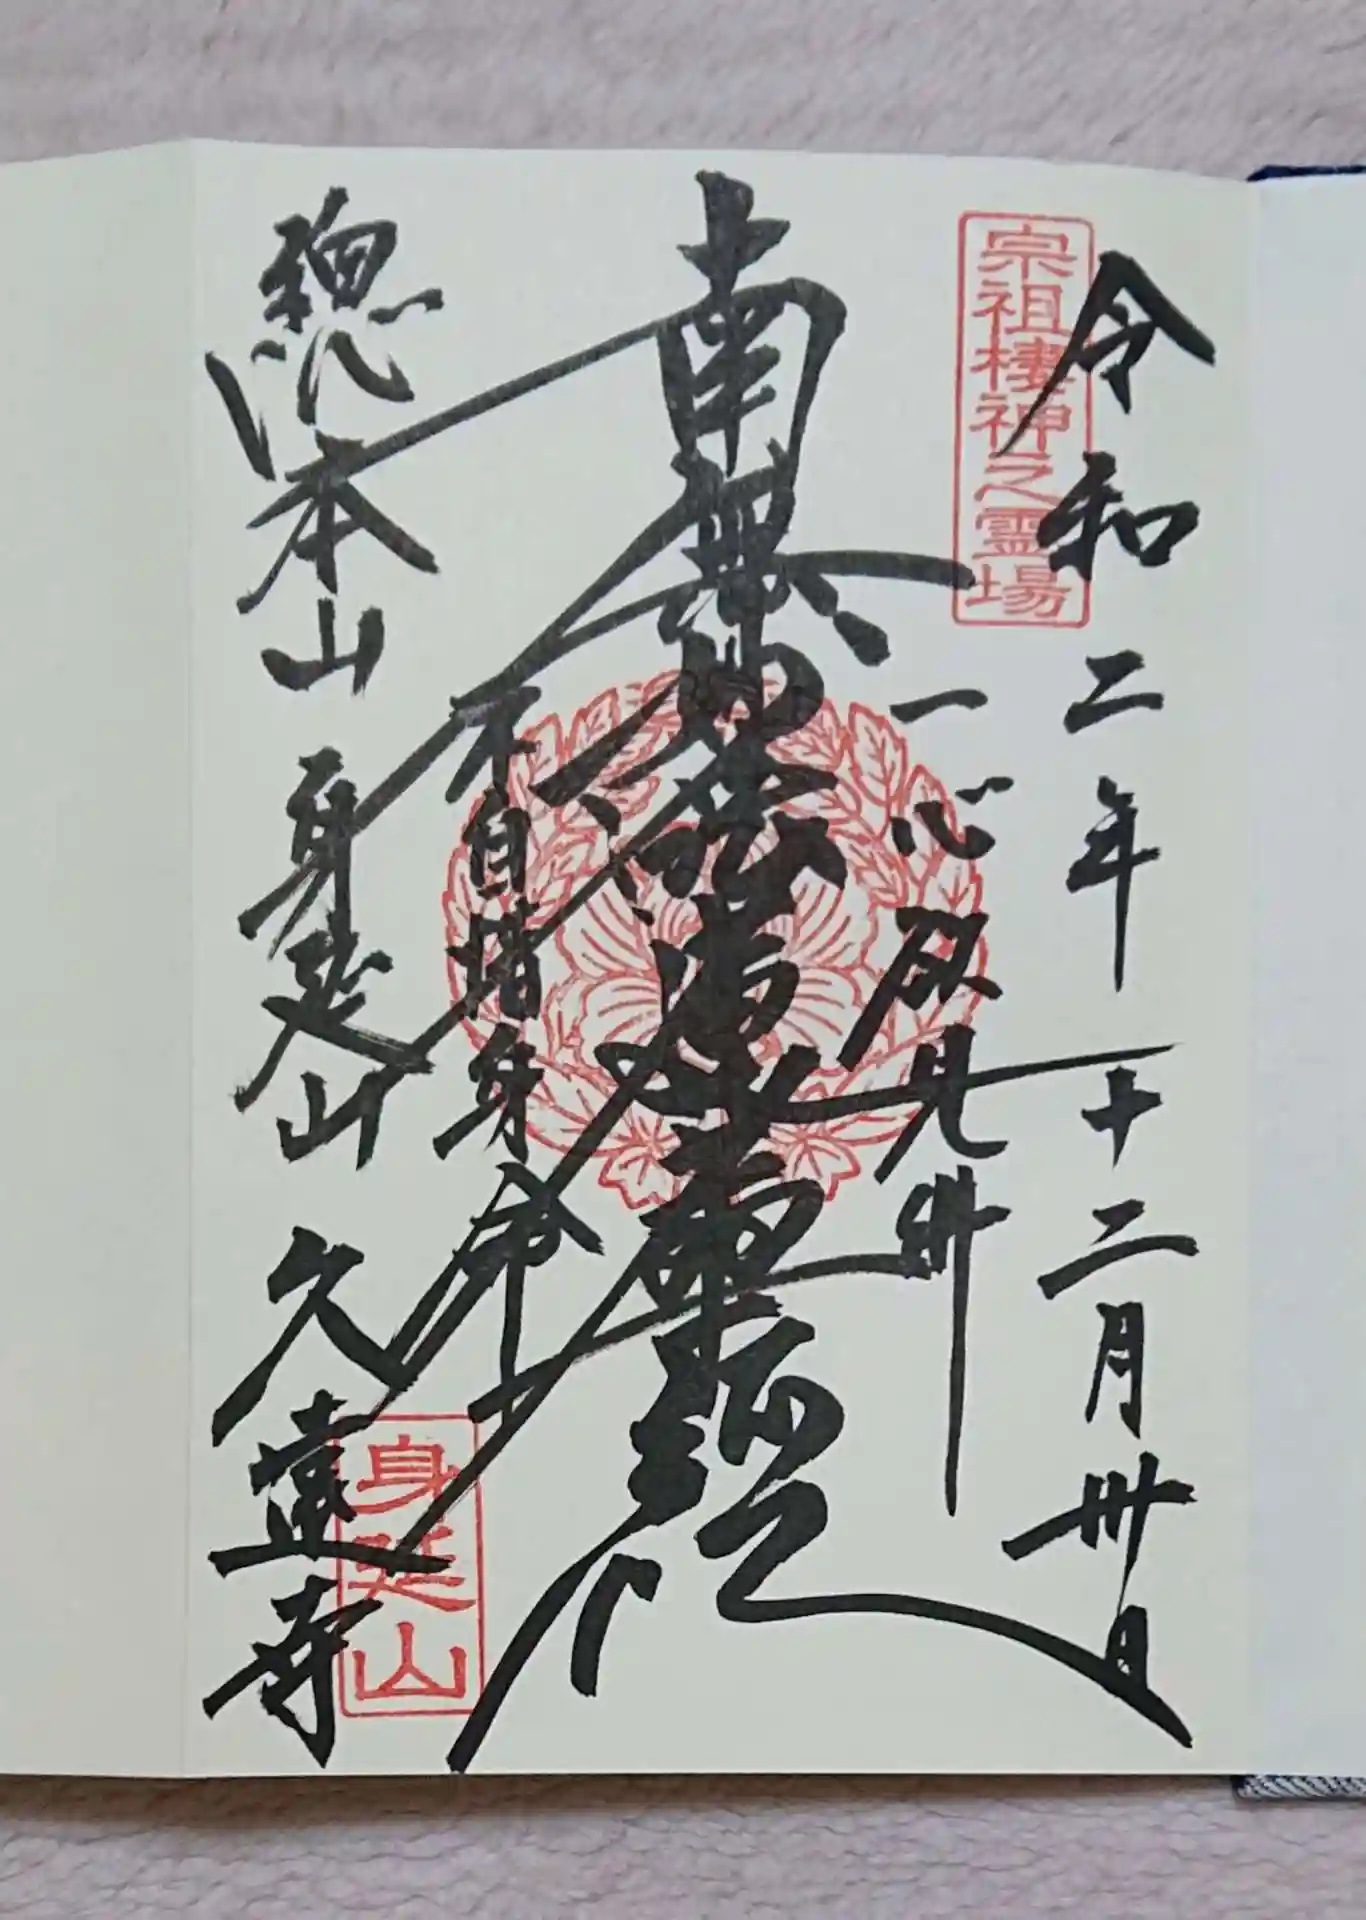 令和二年十二月卅日
宗祖棲神之霊場
一心欲見佛
南無妙法蓮華経
不自惜身命
身延山
總本山 身延山 久遠寺